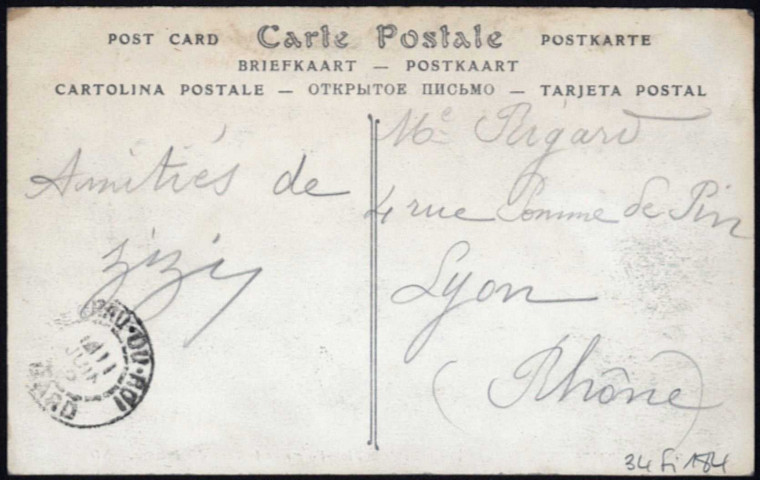 POST CARD Carte Postale POSTKARTE
BRIEFKAART — POSTKAART
CARTOLINA POSTALE — ОТКРЫТОЕ ПИСЬМО — TARJETA POSTAL
Amitiés de
zizi
Me
4 rue Pomme de Pin
Lyon
(Rhône)
GRAU-DU-ROI
JUIN
GARD
34 Fi 184